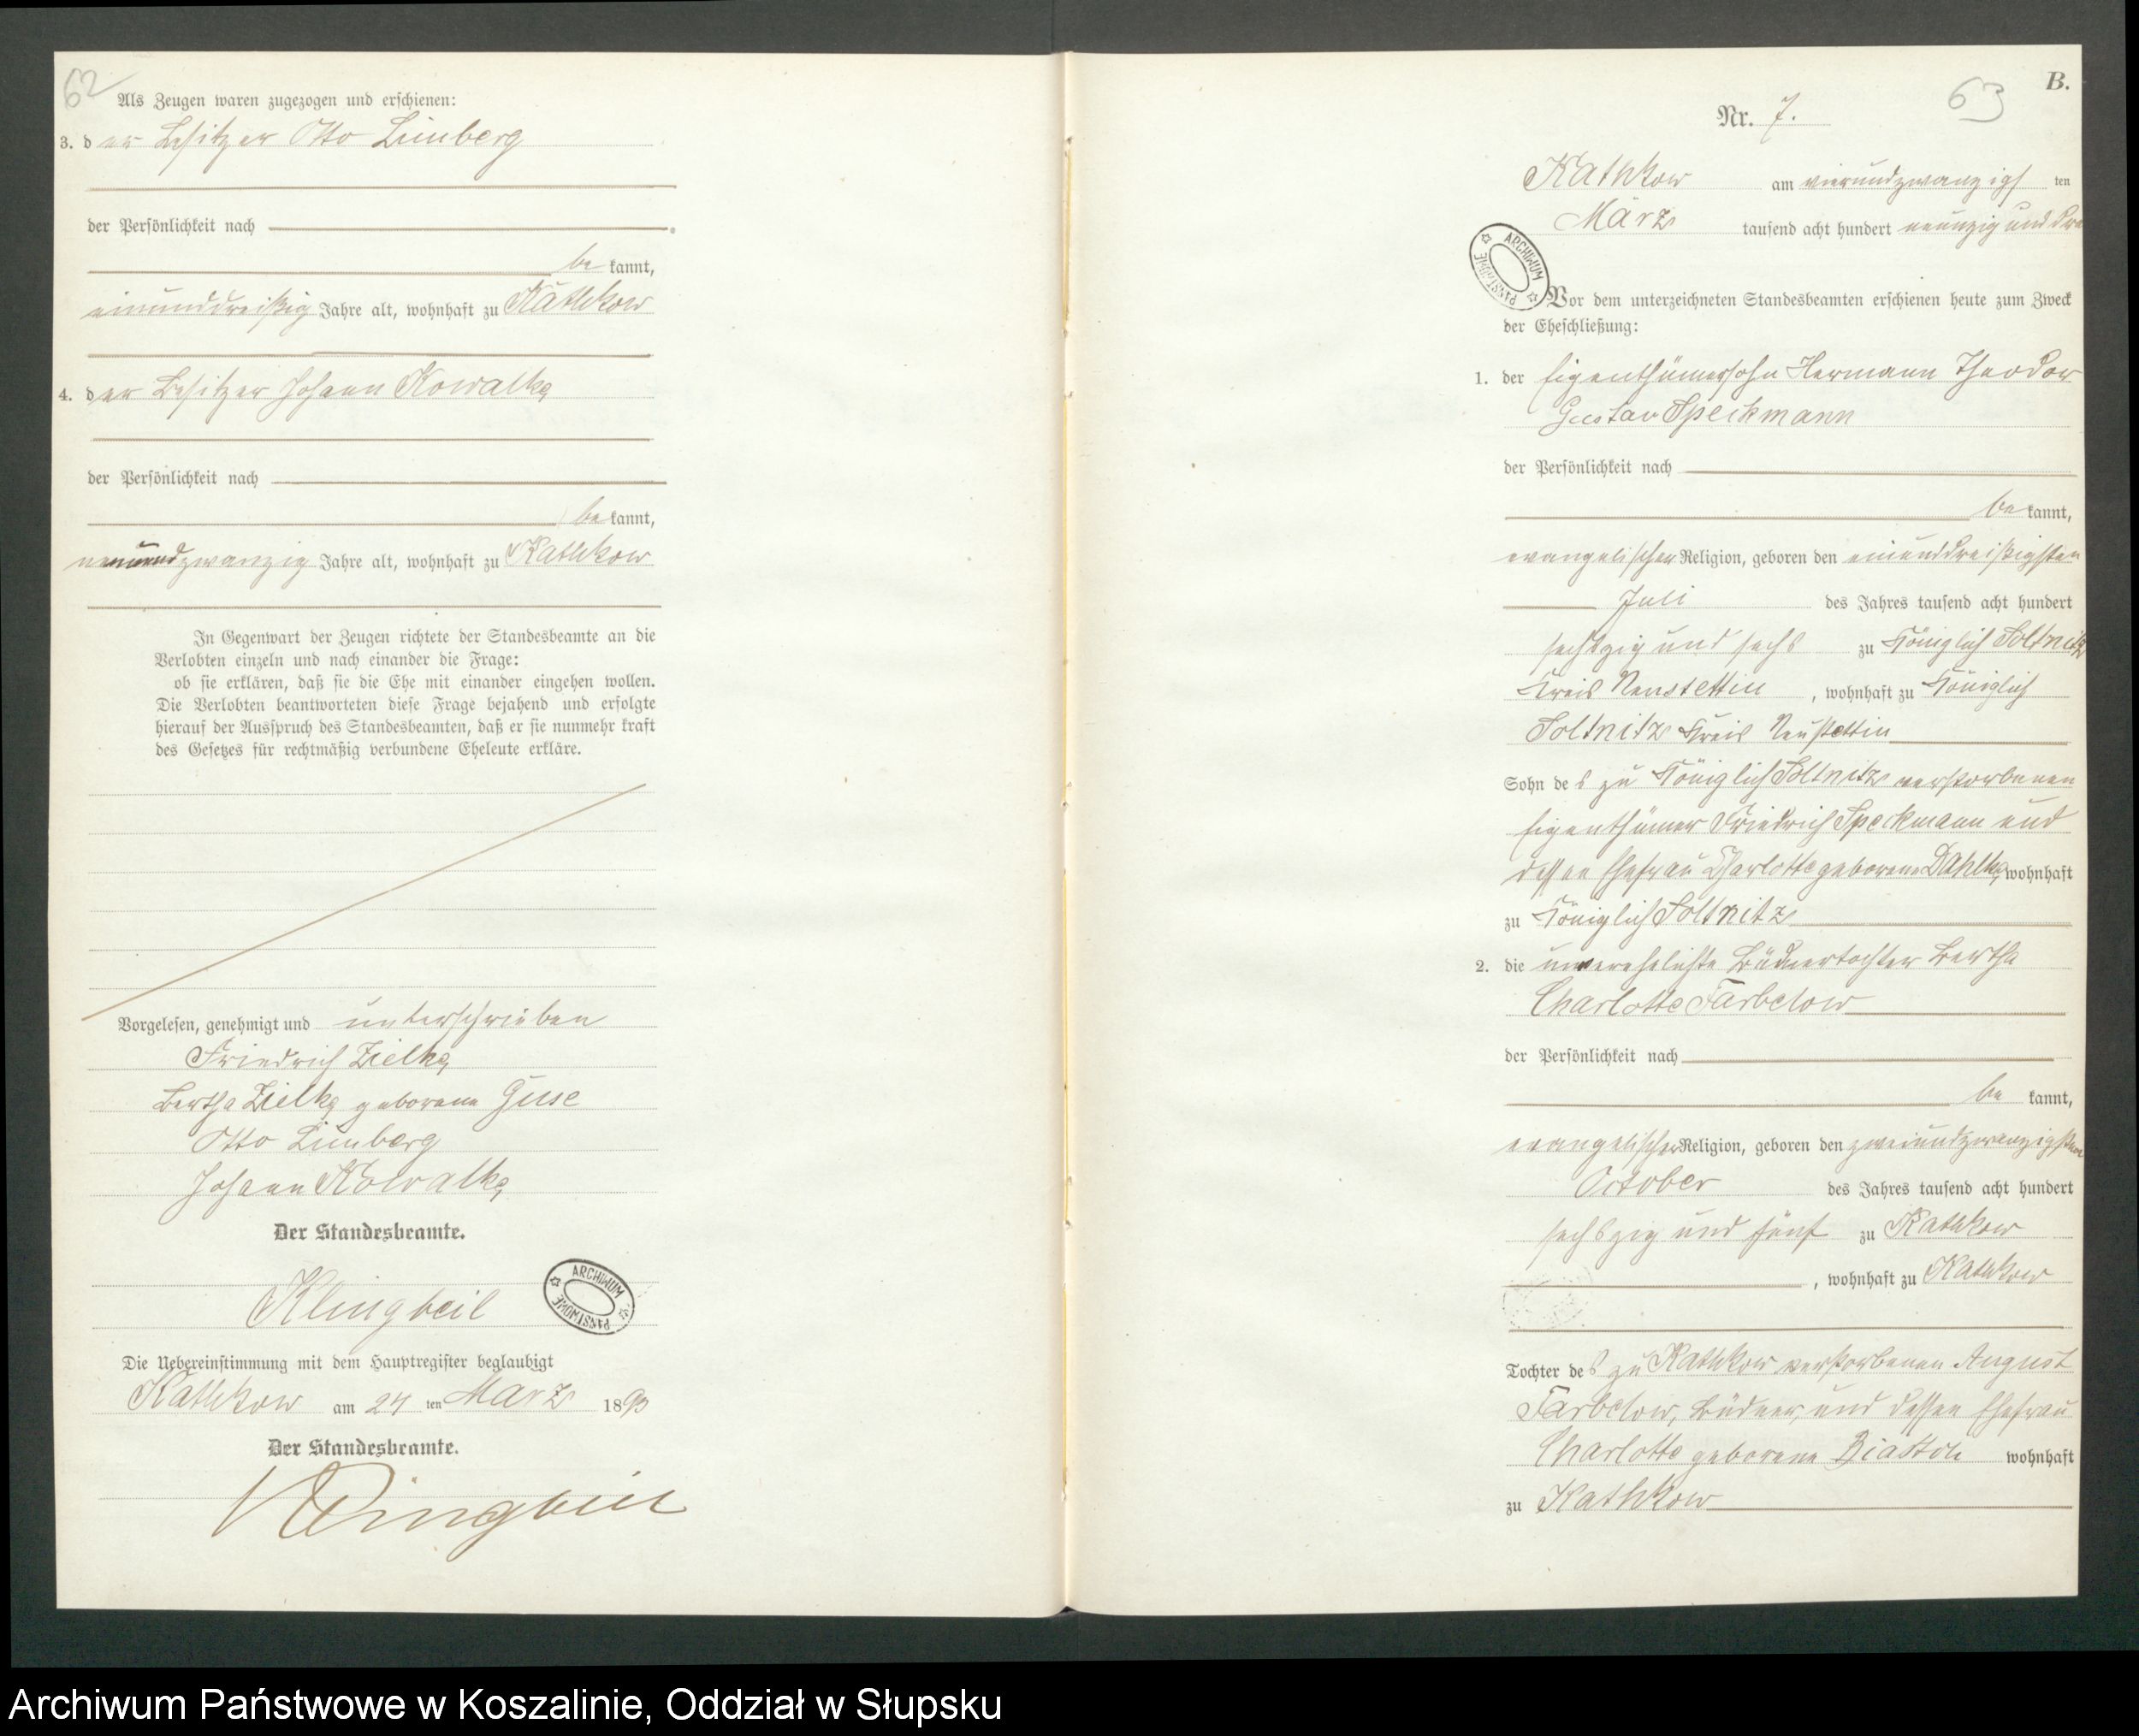 62
Als Zeugen waren zugezogen und erschienen:
3. der Besitzer Otto Limberg
der Persönlichkeit nach
bekannt,
einunddreißig Jahre alt, wohnhaft zu Kathkow
4. der Besitzer Johann Kowalke
der Persönlichkeit nach
bekannt,
neunundzwanzig Jahre alt, wohnhaft zu Kathkow
In Gegenwart der Zeugen richtete der Standesbeamte an die
Verlobten einzeln und nach einander die Frage:
ob sie erklären, daß sie die Ehe mit einander eingehen wollen.
Die Verlobten beantworteten diese Frage bejahend und erfolgte
hierauf der Ausspruch des Standesbeamten, daß er sie nunmehr kraft
des Gesetzes für rechtmäßig verbundene Eheleute erkläre.
Vorgelesen, genehmigt und unterschrieben
Friedrich Zielke
Bertha Zielke geborene Guse
Otto Limberg
Johann Kowalke
Der Standesbeamte.
Klingbeil
ARCHIWUM PAŃSTWOWE
Die Uebereinstimmung mit dem Hauptregister beglaubigt
Kathkow am 24 ten März 1893
Der Standesbeamte.
Klingbeil
B.
63
Nr. 7.
Kathkow am vierundzwanzigs ten
März tausend acht hundert neunzig und drei
ARCHIWUM PAŃSTWOWE
Vor dem unterzeichneten Standesbeamten erschienen heute zum Zweck
der Eheschließung:
1. der Eigenthümersohn Hermann Theodor
Gustav Speckmann
der Persönlichkeit nach
bekannt,
evangelischer Religion, geboren den einunddreißigsten
Juli des Jahres tausend acht hundert
sechszig und sechs zu Königlich Soltnitz
Kreis Neustettin, wohnhaft zu Königlich
Soltnitz Kreis Neustettin
Sohn des zu Königlich Soltnitz verstorbenen
Eigenthümer Friedrich Speckmann und
dessen Ehefrau Charlotte geborene Dahlke wohnhaft
zu Königlich Soltnitz
2. die unverehelichte Büdnertochter Bertha
Charlotte Farbelow
der Persönlichkeit nach
bekannt,
evangelischer Religion, geboren den zweiundzwanzigsten
October des Jahres tausend acht hundert
sechszig und fünf zu Kathkow
, wohnhaft zu Kathkow
Tochter des zu Kathkow verstorbenen August
Farbelow, Büdner, und dessen Ehefrau
Charlotte geborene wohnhaft
zu Kathkow
Archiwum Państwowe w Koszalinie, Oddział w Słupsku